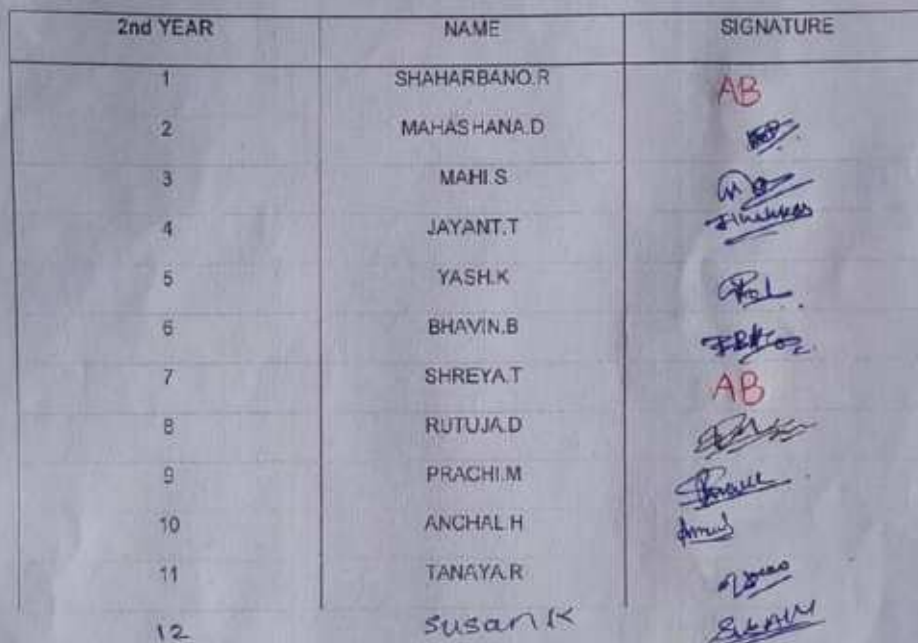 2nd YEAR NAME SIGNATURE
1 SHAHARBANO.R AB
2 MAHASHANA.D
3 MAHI.S
4 JAYANT.T
5 YASH.K
6 BHAVIN.B
7 SHREYA.T AB
8 RUTUJA.D
9 PRACHI.M
10 ANCHAL.H
11 TANAYA.R
12 Susan K